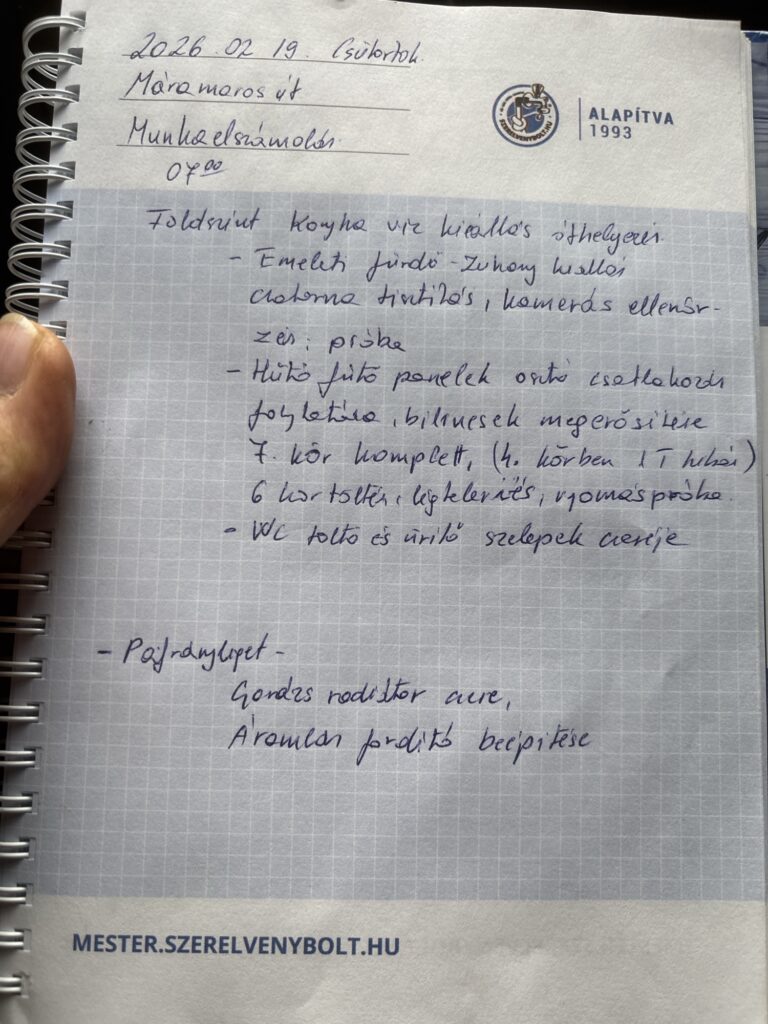 2026.02.19. Csütörtök.
Máramaros út
ALAPÍTVA
1993
SZERELVENYBOLT.HU
Munkaelszámolás.
07⁰⁰
Földszint Konyha víz kiállás áthelyezés
- Emeleti fürdő - Zuhany kiállás
csatorna tisztítás, kamerás ellenőr-
zés, próba
- Hűtő fűtő panelek osztó csatlakozás
folytatása, bilincsek megerősítése
7. kör komplett, (4. körben 1 T hibás)
6 kör töltés, légtelenítés, nyomáspróba.
- WC töltő és ürítő szelepek cseréje
- Páfrányliget -
Garázs radiátor csere,
Áramlás fordító beépítése
MESTER.SZERELVENYBOLT.HU